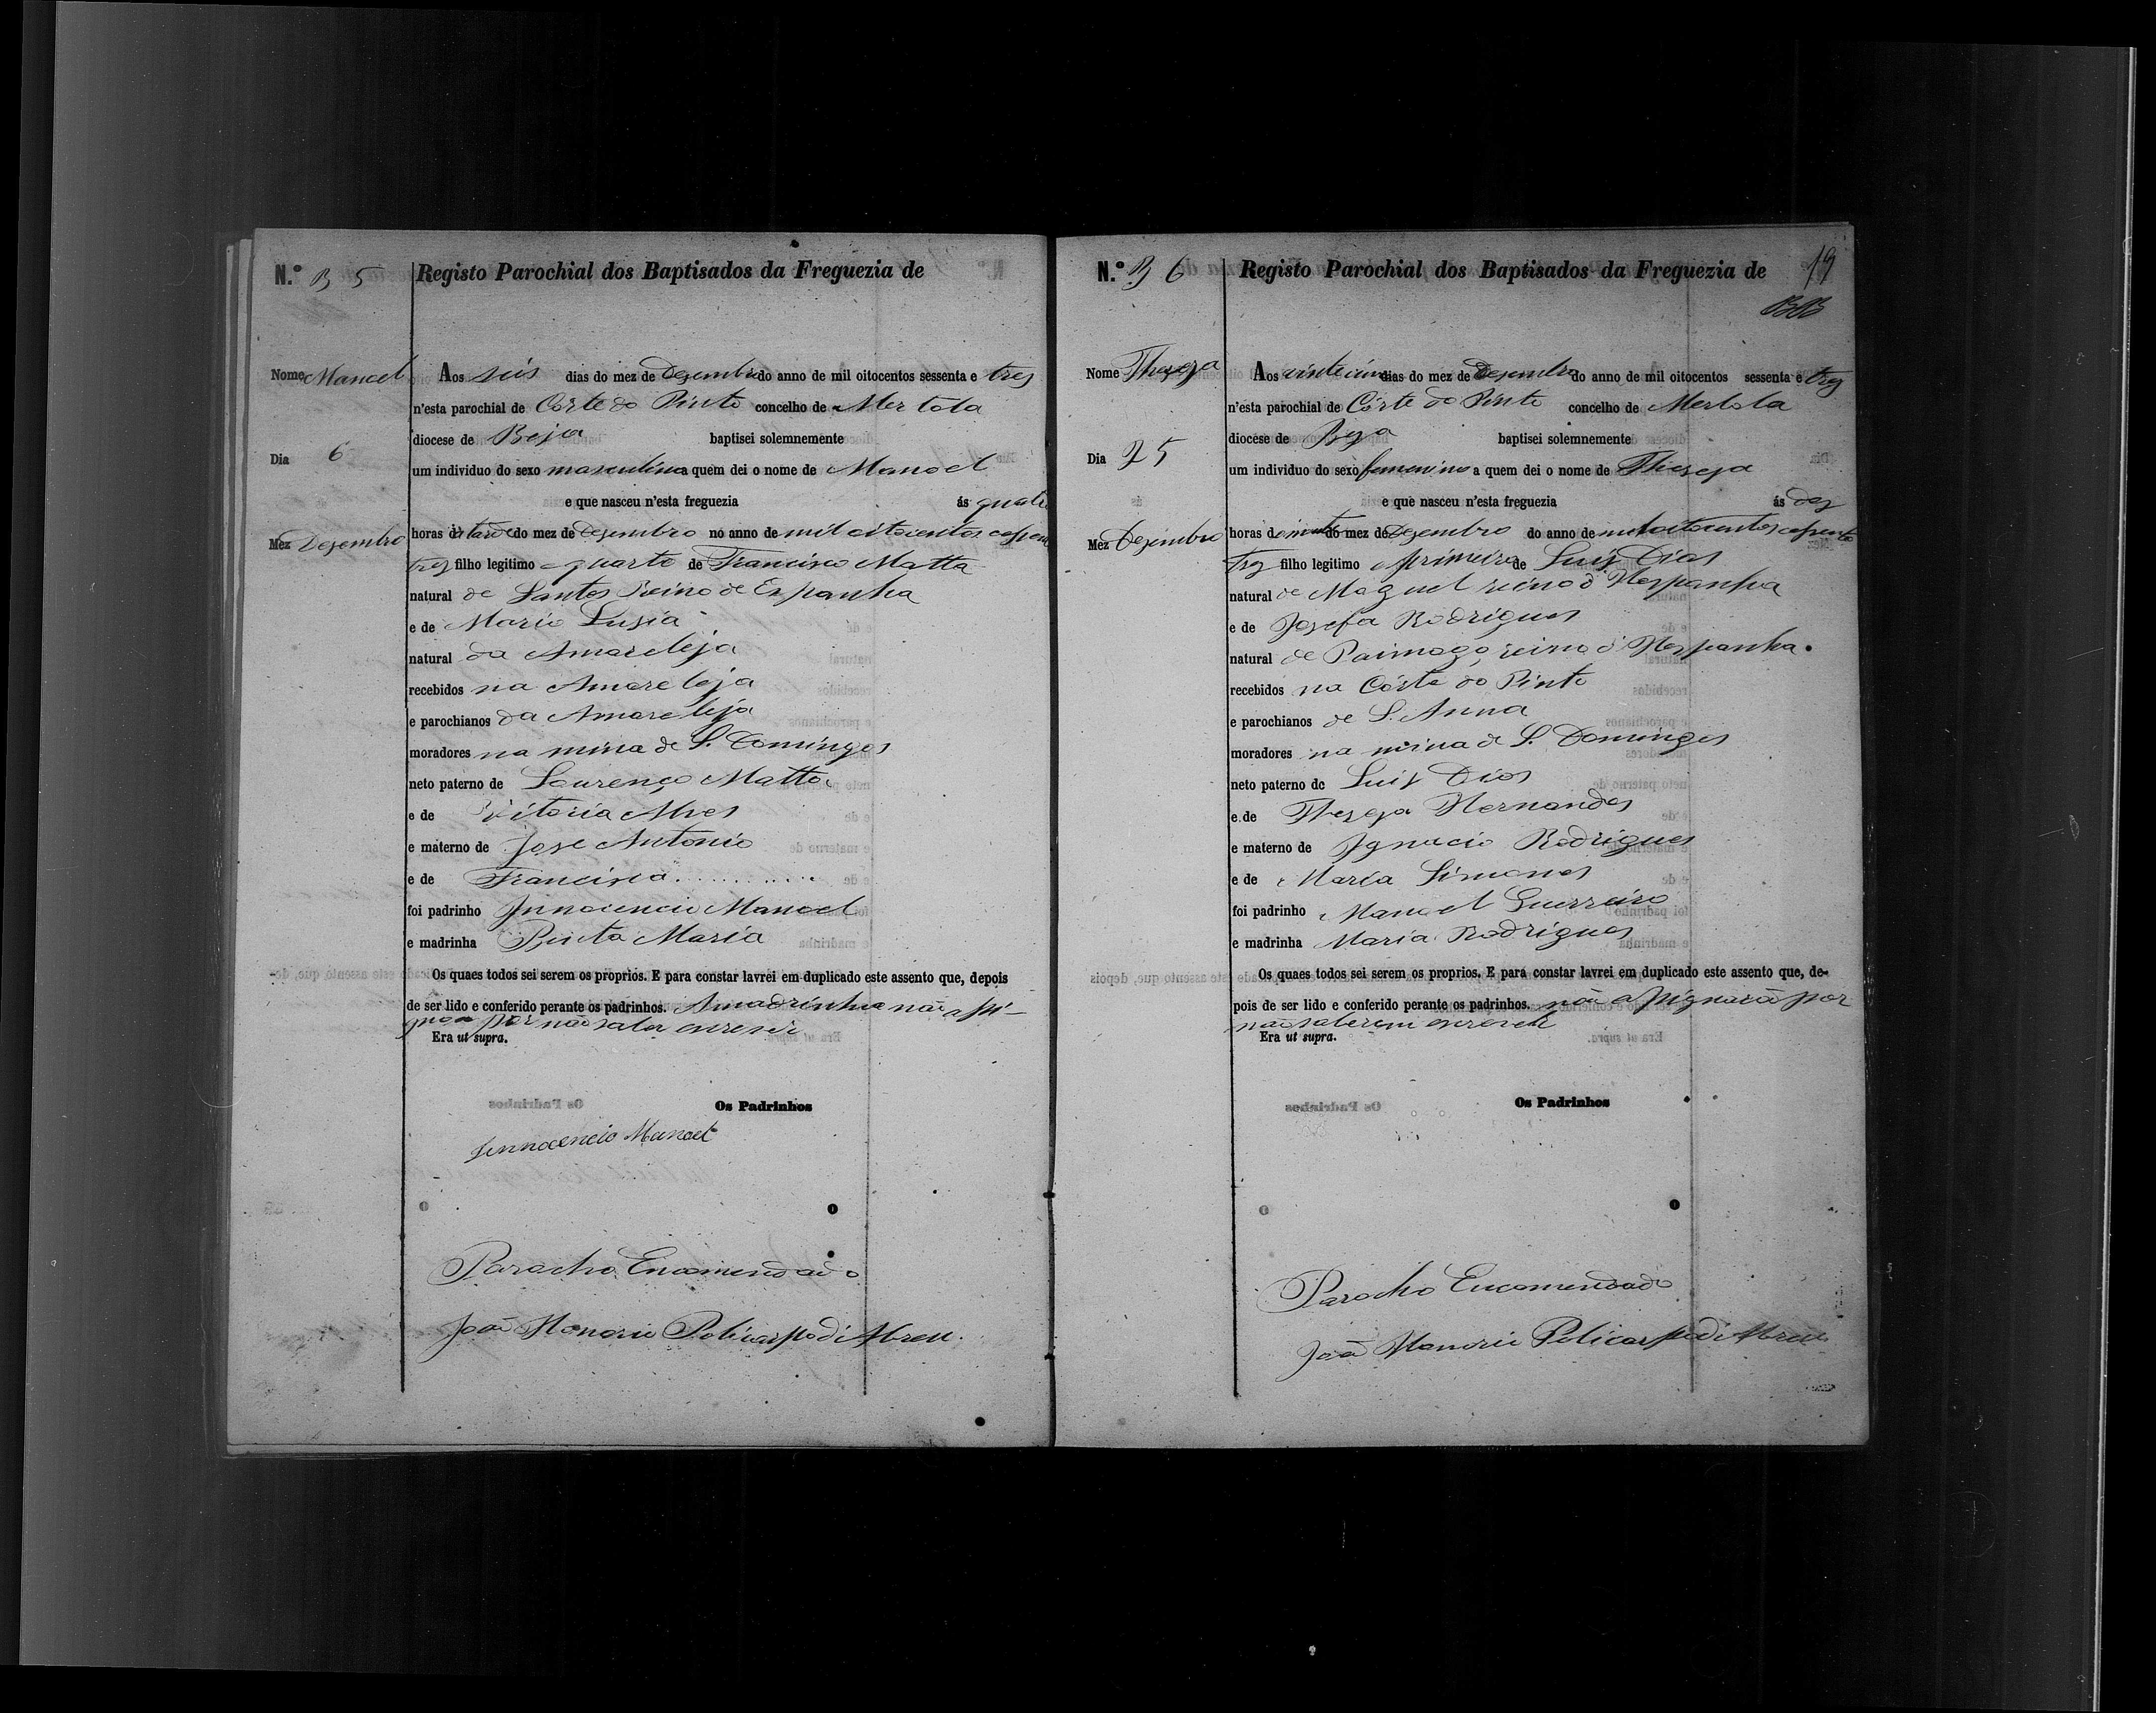 N.º B 5
Registo Parochial dos Baptisados da Freguezia de
Nome Manoel
Dia 6
Mez Dezembro
Aos seis dias do mez de Dezembro do anno de mil oitocentos sessenta e tres
n'esta parochial de Côrte do Pinto concelho de Mertola
diocese de Beja baptisei solemnemente
um individuo do sexo masculino a quem dei o nome de Manoel
e que nasceu n'esta freguezia ás quatro
horas da tarde do mez de Dezembro no anno de mil oitocentos
tres filho legitimo quarto de Francisco Matta
natural de Santos Reino de Espanha
e de Maria Lusia
natural da Amareleja
recebidos na Amareleja
e parochianos da Amareleja
moradores na mina de S. Domingos
neto paterno de Lourenço Matta
e de Vitoria Alves
e materno de Jose Antonio
e de Francisca . . . . . . . . . . .
foi padrinho Innocencio Manoel
e madrinha Maria
Os quaes todos sei serem os proprios. E para constar lavrei em duplicado este assento que, depois
de ser lido e conferido perante os padrinhos. A madrinha não assi-
gnou por não saber escrever
Era ut supra.
Os Padrinhos
Innocencio Manoel
Parocho Encomendado
João Honorio Policarpo di Abreu.
N.º B 6
Registo Parochial dos Baptisados da Freguezia de
19
Nome Thereza
Dia 25
Mez Dezembro
Aos dias do mez de Dezembro do anno de mil oitocentos sessenta e tres
n'esta parochial de Côrte do Pinto concelho de Mertola
diocese de Beja baptisei solemnemente
um individuo do sexo femenino a quem dei o nome de Thereza
e que nasceu n'esta freguezia ás dez
horas da noute do mez de Dezembro do anno de mil oitocentos
tres filho legitimo primeiro de Luiz Dias
natural de reino d'Hespanha
e de Josefa Rodrigues
natural de Paimogo, reino d'Hespanha.
recebidos na Côrte do Pinto
e parochianos de S. Anna
moradores na mina de S. Domingos
neto paterno de Luiz Dias
e de Thereza Hernandes
e materno de Ignacio Rodrigues
e de Maria Simones
foi padrinho Manoel Guerreiro
e madrinha Maria Rodrigues
Os quaes todos sei serem os proprios. E para constar lavrei em duplicado este assento que, de-
pois de ser lido e conferido perante os padrinhos. não assignarão por
não saberem escrever
Era ut supra.
Os Padrinhos
Parocho Encomendado
João Honorio Policarpo di Abreu